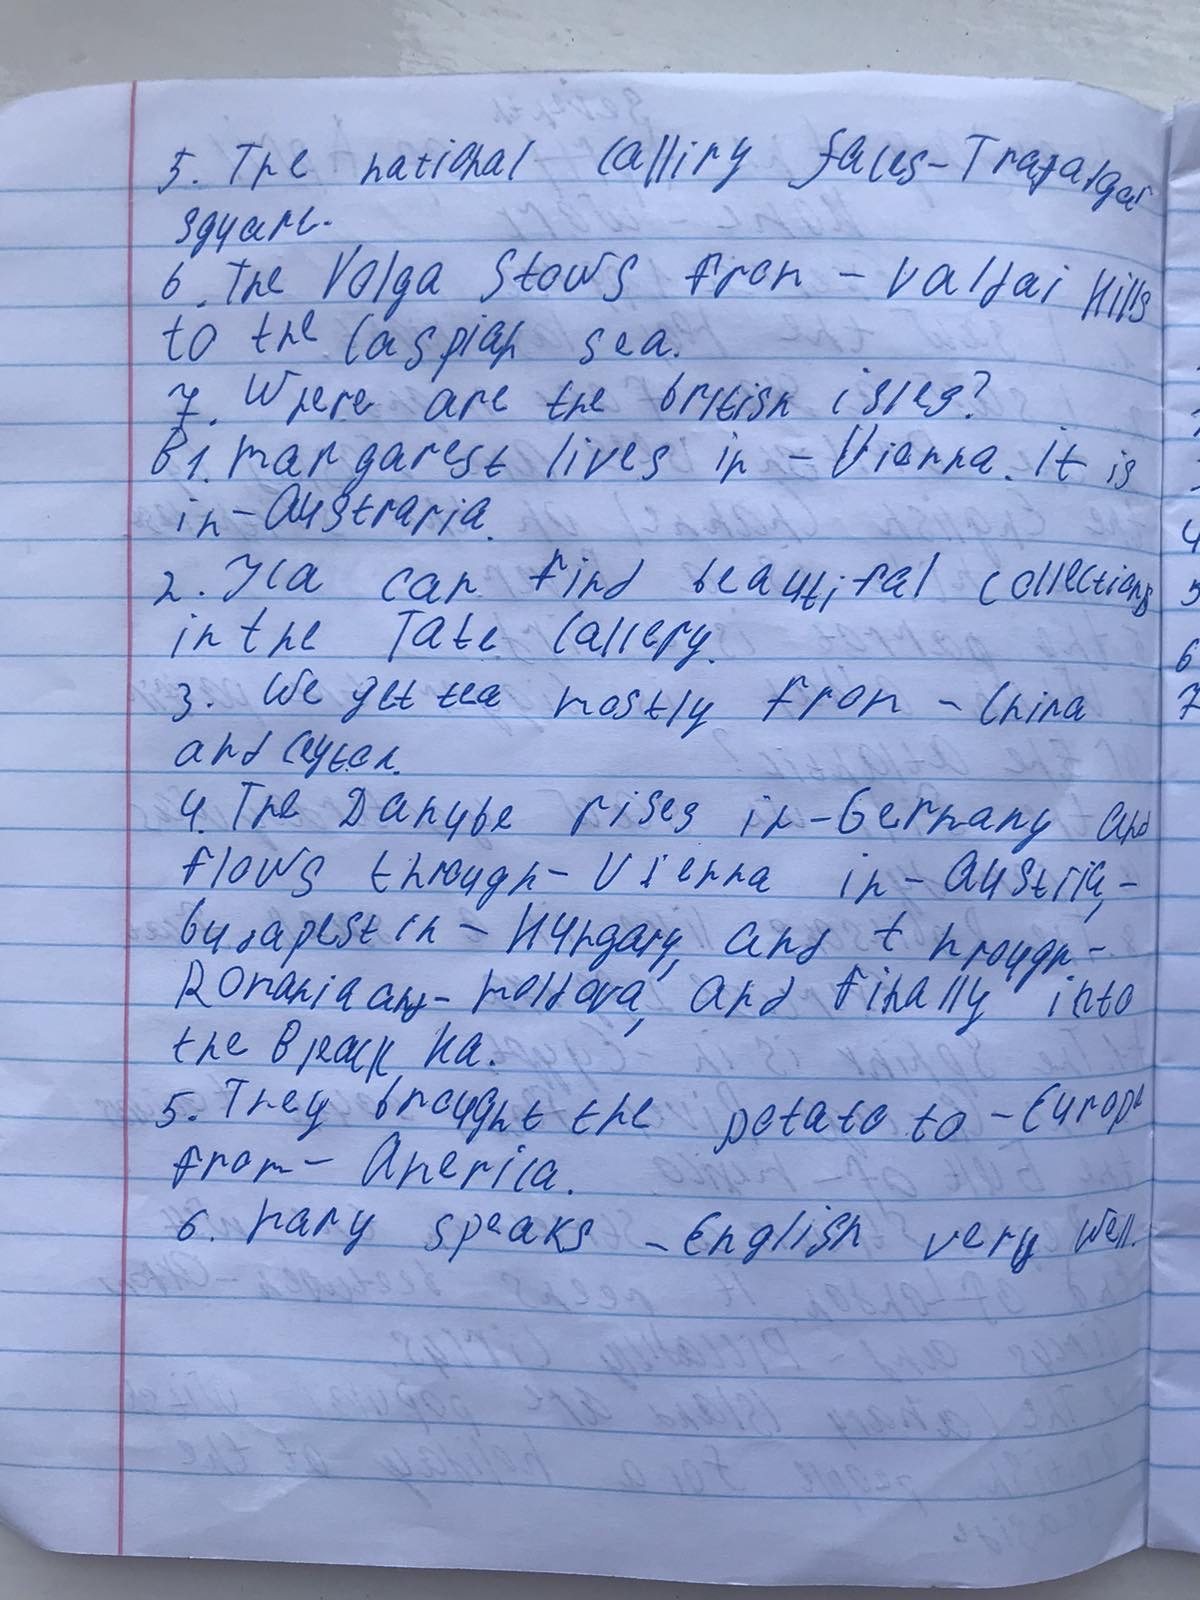 5. The national Calliry faces - Trafalgar
sgyare.
6. The Volga stows fron - Valdai Hills
to the Caspian sea.
7. Where are the british isles?
B1. Margarest lives in - Vienna. It is
in - Austraria.
2. can find beautifal collections
in the Tate Callery.
3. We get tea mostly fron - China
and Ceyton.
4. The Danybe rises in - Germany and
flows through - Vienna in - Austria, -
budapest in - Hungary, and through -
Romania and - moldova, and finally into
the
5. They brought the potato to - Europe
from - America.
6. Mary speaks - English very well.
4
5
6
7